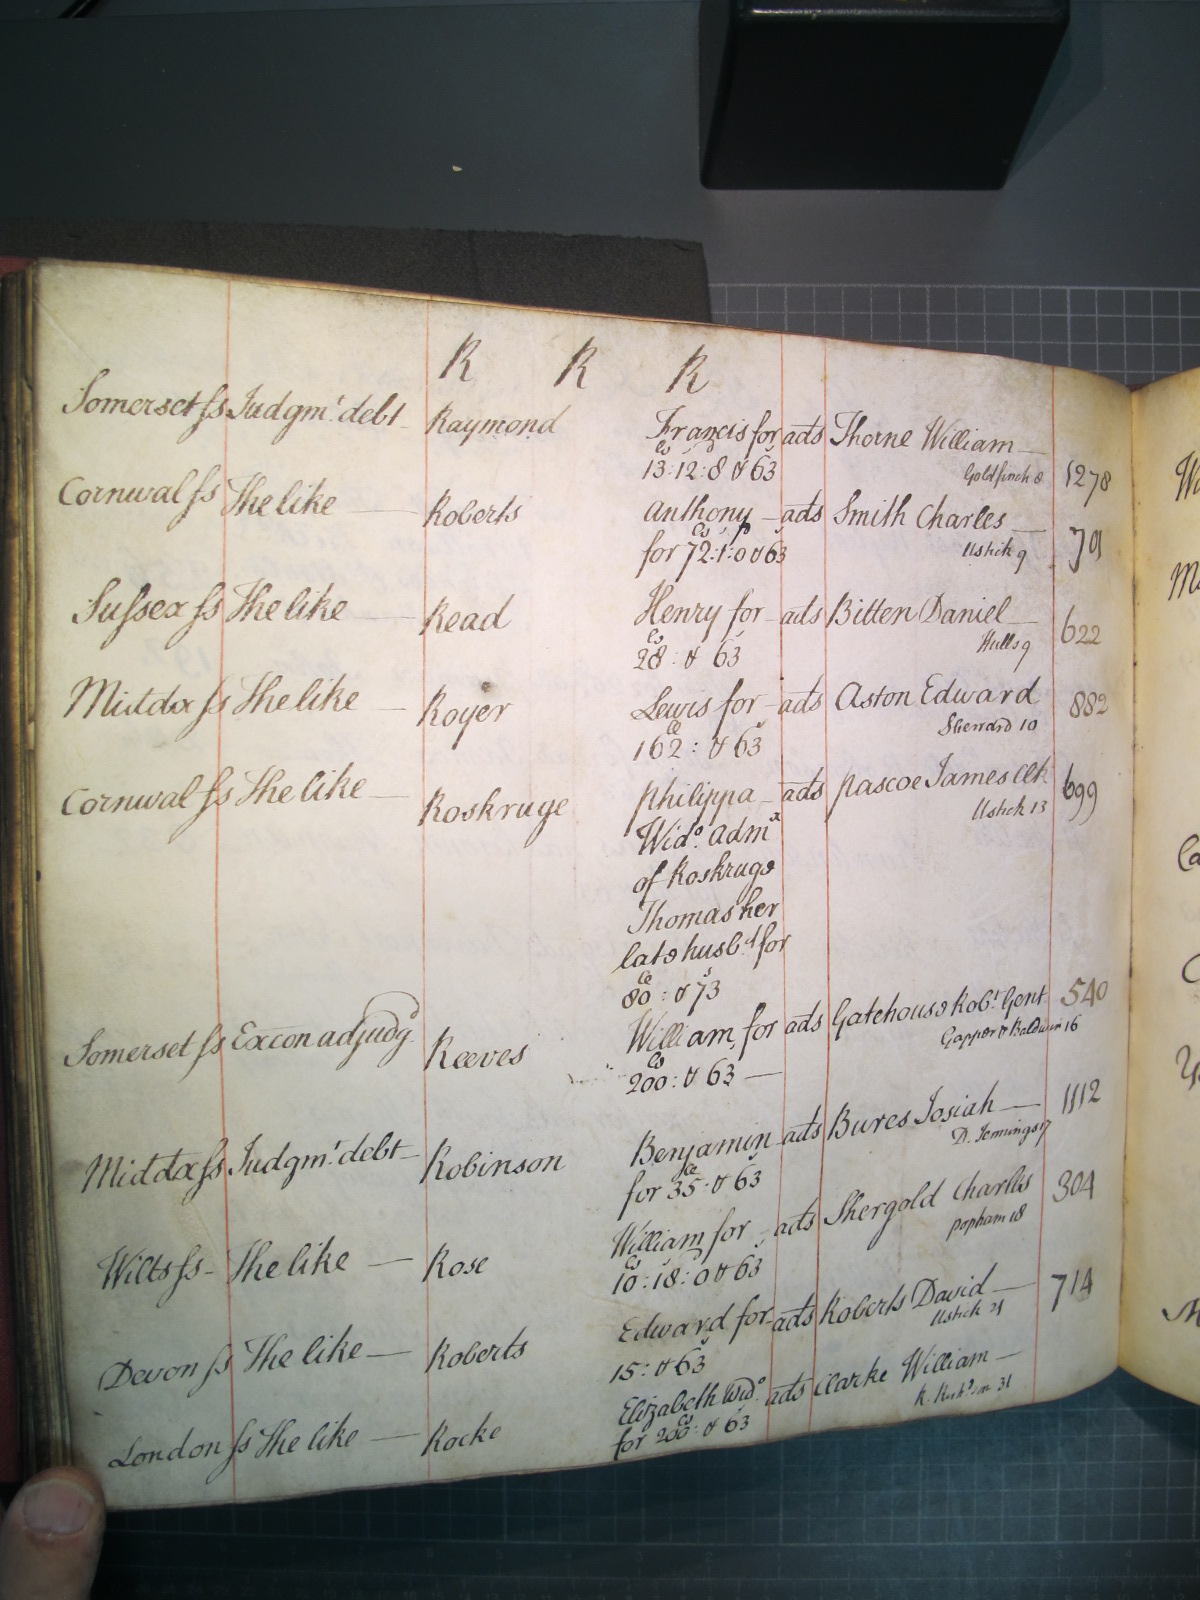 R R R
Somerset ss Judgmt. debt Raymond Francis for ads Thorne William
13:12:8 & 63s Goldfinch 8 1278
Cornwal ss The like Roberts Anthony ads Smith Charles
for 72:1:0 & 63 Ustick 9 701
Sussex ss The like Read Henry for ads Bitten Daniel
28: & 63 Hulls 9 622
Middx ss The like Royer Lewis for ads Aston Edward 882
162: & 63 Sherrard 10
Cornwal ss The like Roskruge Philippa ads Pascoe James Clk 699
Wido. Admx Ustick 13
of Roskruge
Thomas her
late husbd for
80: & 73
Somerset ss Excon adjudg Reeves William for ads Gatehouse Robt. Gent 540
200: & 63 Gapper & Baldwin 16
Middx ss Judgmt. debt Robinson Benjamin ads Bures Josiah 1112
for 35: & 63 D. Jennings 17
Wilts ss The like Rose William for ads Shergold Charles 304
10:18:0 & 63 Popham 18
Devon ss The like Roberts Edward for ads Roberts David 714
15: & 63 Ustick 21
London ss The like Rocke Elizabeth Wido. ads Clarke William
for 200: & 63 R. 31